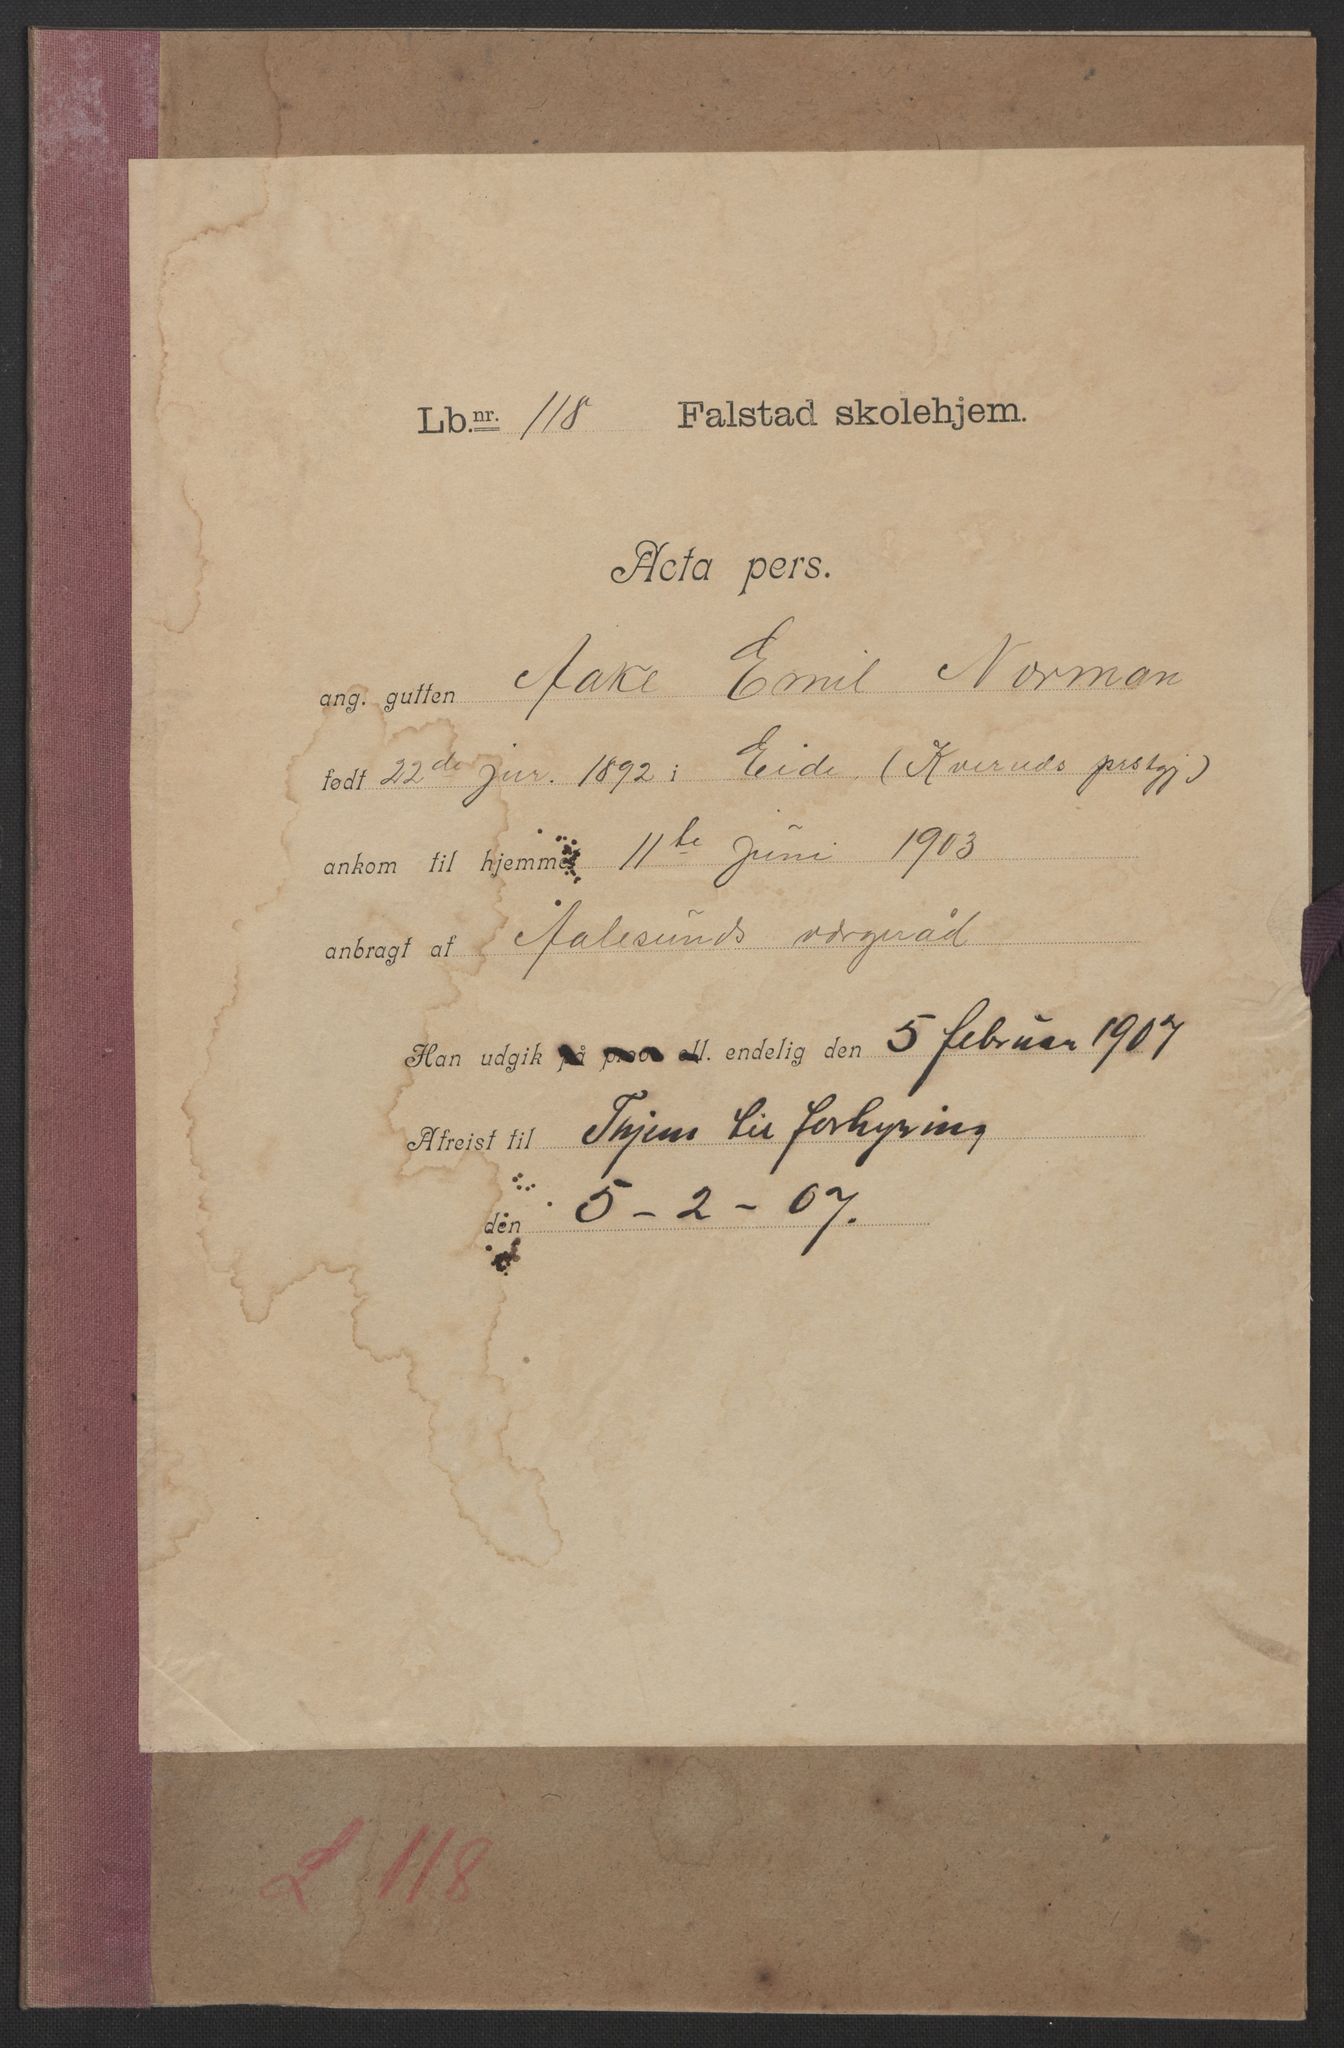 Lb.nr. 118 Falstad skolehjem.
Acta pers.
ang. gutten Aake Emil Norman
født 22de jnr. 1892 i Eide (Kverneds prstgj)
ankom til hjemmet 11te juni 1903
anbragt af Aalesunds værgeråd
Han udgik på prøve ell. endelig den 5 februar 1907
Afreist til Thjem til forhyring
den 5-2-07.
L 118